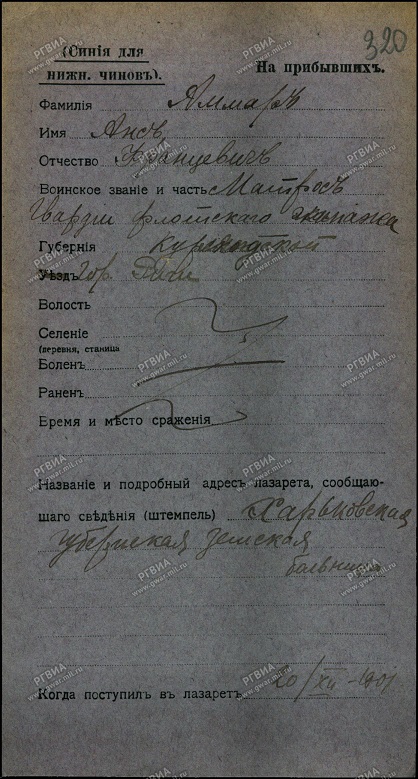 320
(Синія для нижн. чиновъ). На прибывшихъ.
Фамилія Яммаръ
Имя Ансъ
Отчество Францевичъ
Воинское званіе и часть Матросъ
Гвардіи флотскаго экипажа
Губернія Курляндской
Уѣздъ гор.
Волость
Селеніе
(деревня, станица
Боленъ
Раненъ
Время и мѣсто сраженія
Названіе и подробный адресъ лазарета, сообщаю-
щаго свѣдѣнія (штемпель) Харьковская
губернская земская
больница
Когда поступил въ лазаретъ 20/XII
РГВИА
www.gwar.mil.ru